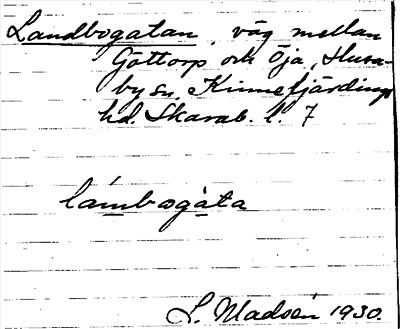 Landbogatan, väg mellan
Göttorp och Öja, Husa-
by sn, Kinnefjärdings
hd. Skarab. l. 7
lámbogàta
L. Madsén 1930.